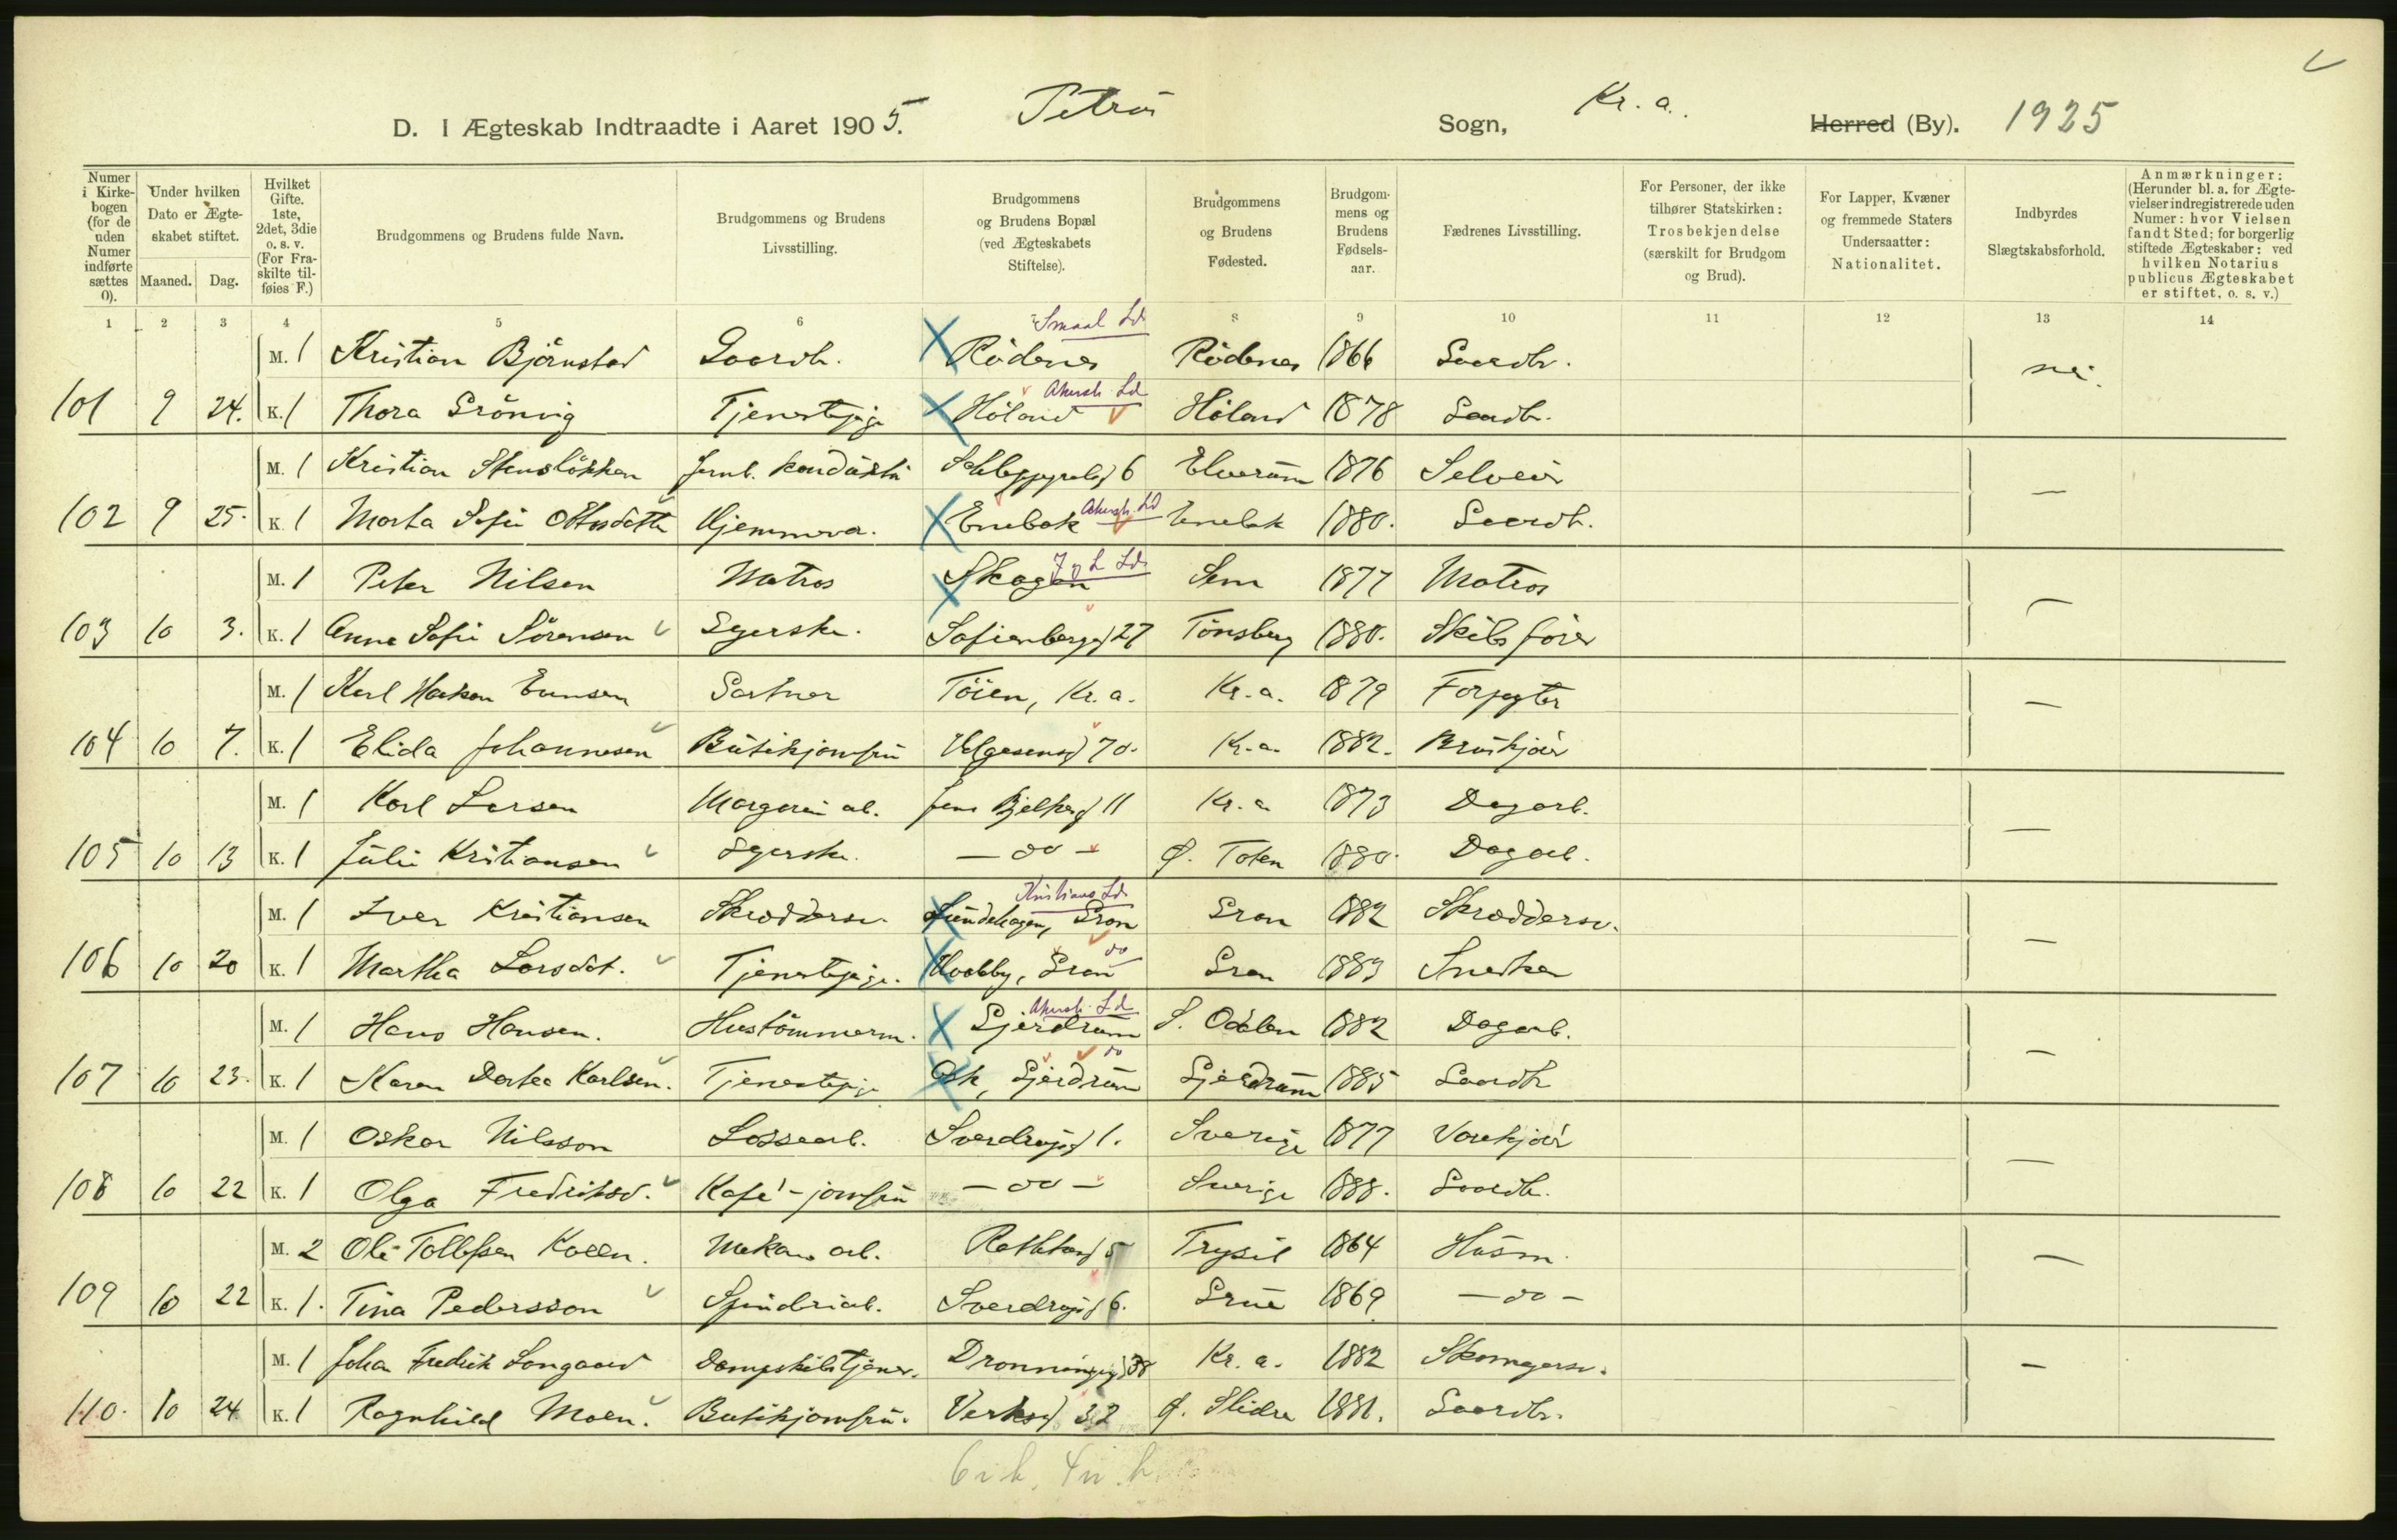 D. I Ægteskab Indtraadte i Aaret 1905. Petrus Sogn, Kr. a. Herred (By). 1925
Numer i Kirkebogen (for de uden Numer indførte sættes 0).
Under hvilken Dato er Ægteskabet stiftet.
Maaned. Dag.
Hvilket Gifte. 1ste, 2det, 3die o. s. v. (For Fraskilte tilføies F.)
Brudgommens og Brudens fulde Navn.
Brudgommens og Brudens Livsstilling.
Brudgommens og Brudens Bopæl (ved Ægteskabets Stiftelse).
Brudgommens og Brudens Fødested.
Brudgommens og Brudens Fødselsaar.
Fædrenes Livsstilling.
For Personer, der ikke tilhører Statskirken: Trosbekjendelse (særskilt for Brudgom og Brud).
For Lapper, Kvæner og fremmede Staters Undersaatter: Nationalitet.
Indbyrdes Slægtskabsforhold.
Anmærkninger: (Herunder bl. a. for Ægtevielser indregistrerede uden Numer: hvor Vielsen fandt Sted; for borgerlig stiftede Ægteskaber: ved hvilken Notarius publicus Ægteskabet er stiftet, o. s. v.)
1 2 3 4 5 6 7 8 9 10 11 12 13 14
Smaal Ld
M. 1 Kristian Björnstad Gaardb. Rödenes Rödenes 1866 Gaardbr. nei.
Akersh Ld
101 9 24. K. 1 Thora Grönvig Tjenestepige Höland Höland 1878 Gaardb.
M. 1 Kristian Stenslökken Jernb. konduktör Schleppegrelsg 6 Elverum 1876 Selveier —
Akersh. Ld
102 9 25. K. 1 Marta Sofie Ottosdatter Hjemmeva. Enebak Enebak 1880. Gaardb.
J & L Ld.
M. 1 Peter Nilsen Matros Skagen Sem 1877 Matros —
103 10 3. K. 1 Anna Sofie Sörensen Syerske. Sofienbergg 27 Tönsberg 1880. Skibsförer
M. 1 Karl Haakon Evensen Gartner Töien, Kr. a. Kr. a. 1879 Forpagter —
104 10 7. K. 1 Elida Johannesen Butikjomfru Helgesensg 70. Kr. a. 1882. Bruskjöer
M. 1 Karl Larsen Margarin arb. Jens Bjelkesg 11 Kr. a 1873 Dagarb. —
105 10 13 K. 1 Julie Kristiansen Syerske. — do — Ø. Toten 1880. Dagarb.
Kristians Ld.
M. 1 Iver Kristiansen Skræddersv. Lundehagen, Gran Gran 1882 Skræddersv. —
do
106 10 20 K. 1 Martha Larsdat. Tjenestepige. Hvalby, Gran Gran 1883 Snedker
Akersh. Ld
M. 1 Hans Hansen. Hustömmerm. Gjerdrum S. Odalen 1882 Dagarb. —
do
107 10 23. K. 1 Karen Dortea Karlsen. Tjenestepige Ask, Gjerdrum Gjerdrum 1885 Gaardb
M. 1 Oskar Nilsson Lossearb. Sverdrupsg 1. Sverige 1877 Vonkjöer —
108 10 22 K. 1 Olga Fredriksd. Kafé-jomfru — do — Sverige 1888. Gaardb.
M. 2 Ole Tollefsen Koeen. Mekan. arb. Rathkesg 5 Trysil 1864 Husm. —
109 10 22 K. 1. Tina Pedersson Spinderiarb. Sverdrupsg 6. Grue 1869 — do —
M. 1 Johan Fredrik Langaard Dampskibstjener. Dronningensg 38 Kr. a. 1882 Skomagersv. —
110. 10 24 K. 1 Ragnhild Moen. Butikjomfru. Verksg 32 Ø. Slidre 1881. Gaardbr.